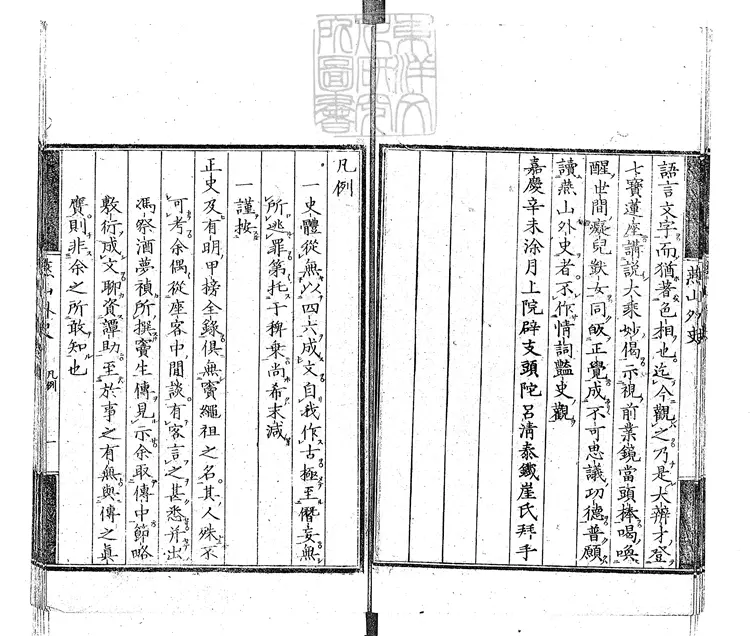 語言文字而猶著色相也迄今觀之乃是大辨才登
七寶蓮座講説大乘妙偈示視前業鏡當頭棒喝喚
醒世間癡兒獃女同皈正覺成不可思議功德普願
讀燕山外史者不作情詞豔史觀
嘉慶辛未涂月上院辟支頭陀呂清泰鐵崖氏拜手
燕山外史
凡例
一史體從無以四六成文自我作古極至僭妄無
所逃罪第托于稗乗尚希末減
一謹按
正史及有明甲榜全錄俱無竇繩祖之名其人殊不
可考余偶從座客中閒談有客言之甚悉并出
馮祭酒夢禎所撰竇生傳見示余取傳中節略
敷衍成文聊資譚助至於事之有無與傳之真
實則非余之所敢知也
燕山外史
凡例
一
東洋文
化研究
所圖書